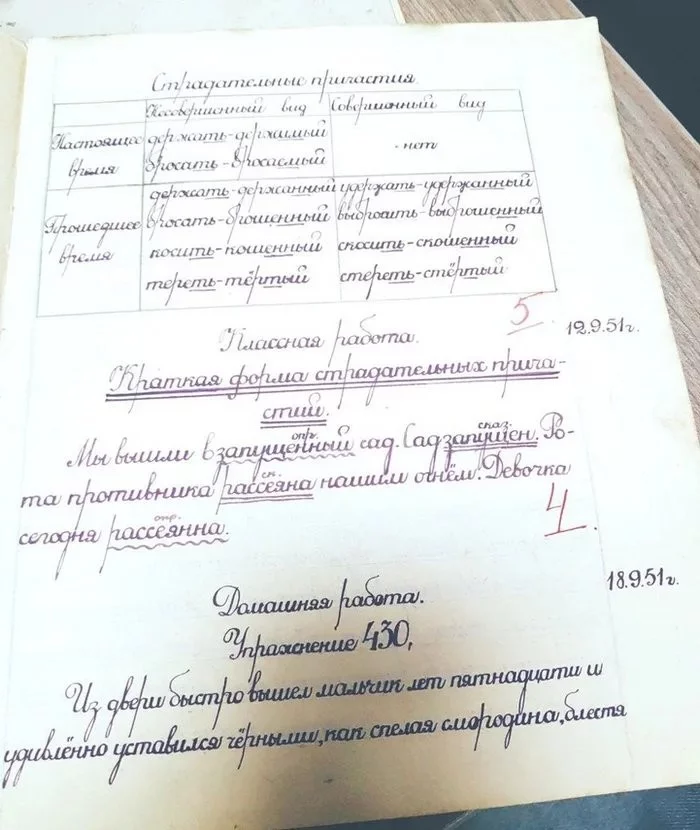 Страдательные причастия.
Несовершенный вид Совершенный вид
Настоящее время
держать-держимый
бросать-бросаемый
-нет
Прошедшее время
держать-держанный
бросать-брошенный
косить-кошенный
тереть-тёртый
удержать-удержанный
выбросить-выброшенный
скосить-скошенный
стереть-стёртый
5
12.9.51г.
Классная работа.
Краткая форма страдательных прича-
стий.
опр. сказ.
Мы вышли в запущенный сад. Сад запущен. Ро-
ск.
та противника рассеяна нашим огнём. Девочка
опр.
сегодня рассеянна.
4.
18.9.51г.
Домашняя работа.
Упражнение 430,
Из двери быстро вышел мальчик лет пятнадцати и
удивлённо уставился чёрными, как спелая смородина, блестя